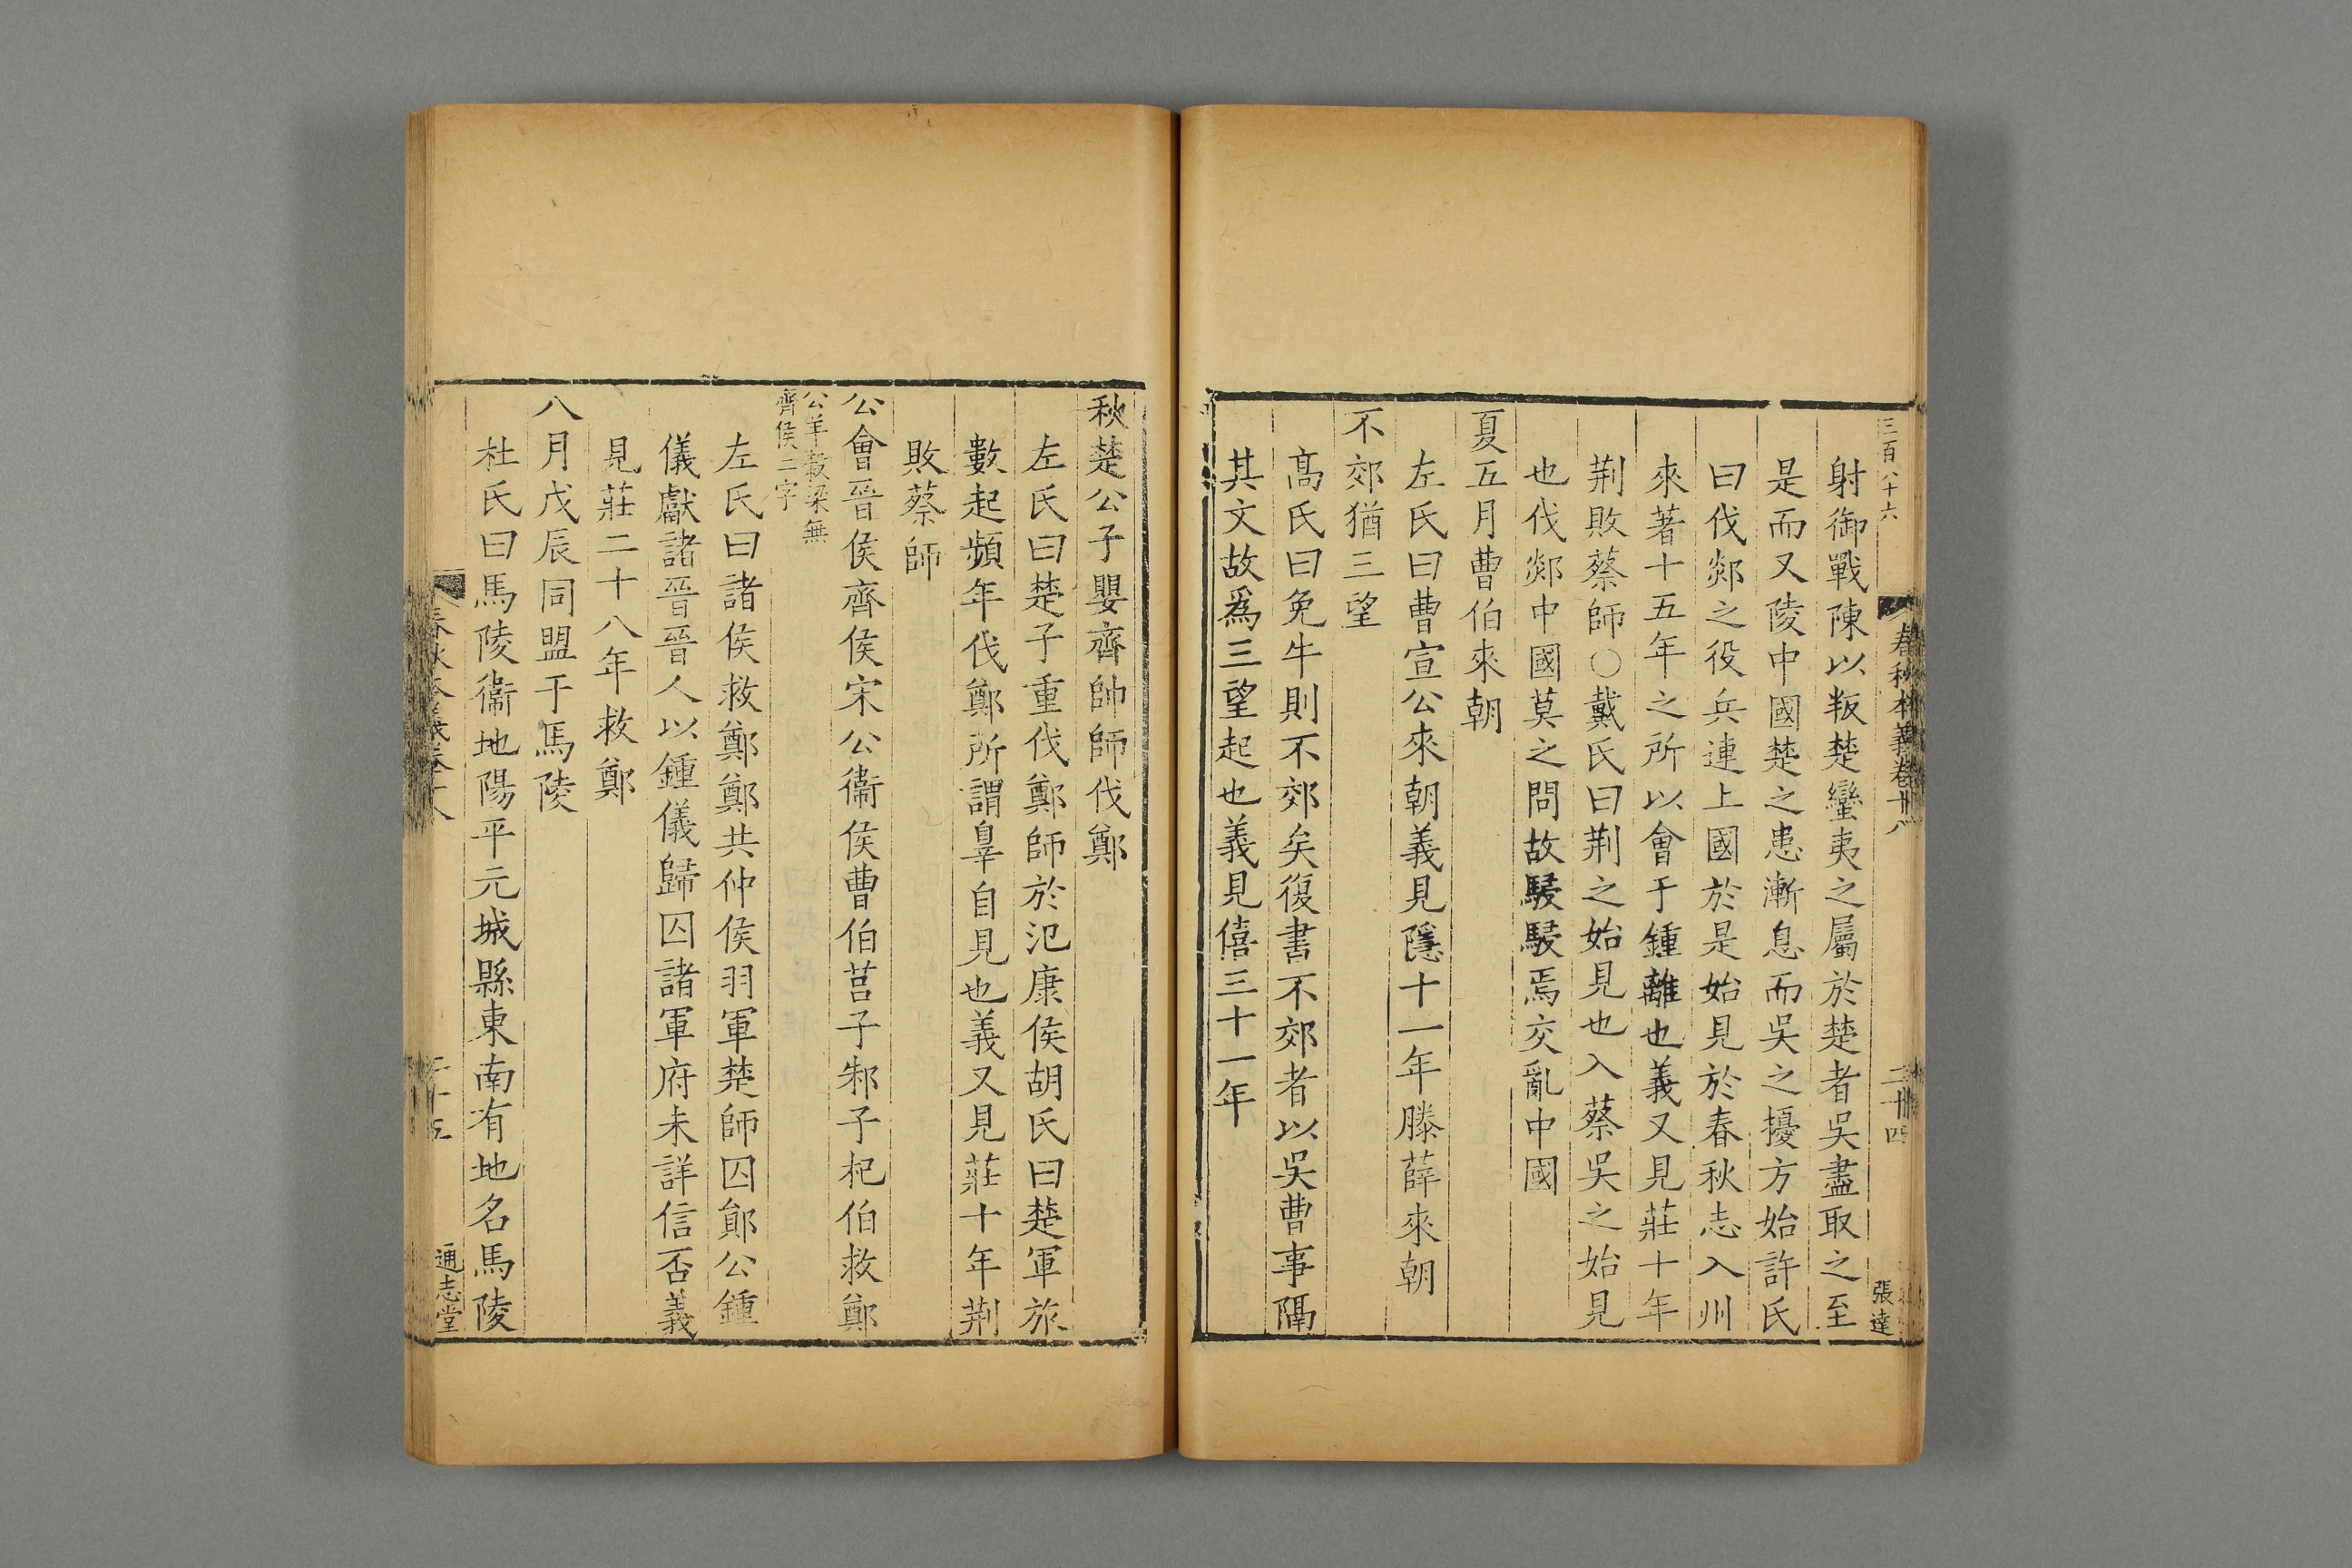 三百八十六
春秋本義卷十八
二十四
張達
射御戰陳以叛楚蠻夷之屬於楚者吳盡取之至
是而又陵中國楚之患漸息而吳之擾方始許氏
曰伐郯之役兵連上國於是始見於春秋志入州
來著十五年之所以會于鍾離也義又見莊十年
荆敗蔡師○戴氏曰荆之始見也入蔡吳之始見
也伐郯中國莫之問故駸駸焉交亂中國
夏五月曹伯來朝
左氏曰曹宣公來朝義見隱十一年滕薛來朝
不郊猶三望
髙氏曰免牛則不郊矣復書不郊者以吳曹事隔
其文故爲三望起也義見僖三十一年
秋楚公子嬰齊帥師伐鄭
左氏曰楚子重伐鄭師於氾康侯胡氏曰楚軍旅
數起頻年伐鄭所謂辠自見也義又見莊十年荆
敗蔡師
公會晉侯齊侯宋公衞侯曹伯莒子邾子杞伯救鄭
公羊穀梁無
齊侯二字
左氏曰諸侯救鄭鄭共仲侯羽軍楚師囚鄖公鍾
儀獻諸晉晉人以鍾儀歸囚諸軍府未詳信否義
見莊二十八年救鄭
八月戊辰同盟于馬陵
杜氏曰馬陵衞地陽平元城縣東南有地名馬陵
通志堂